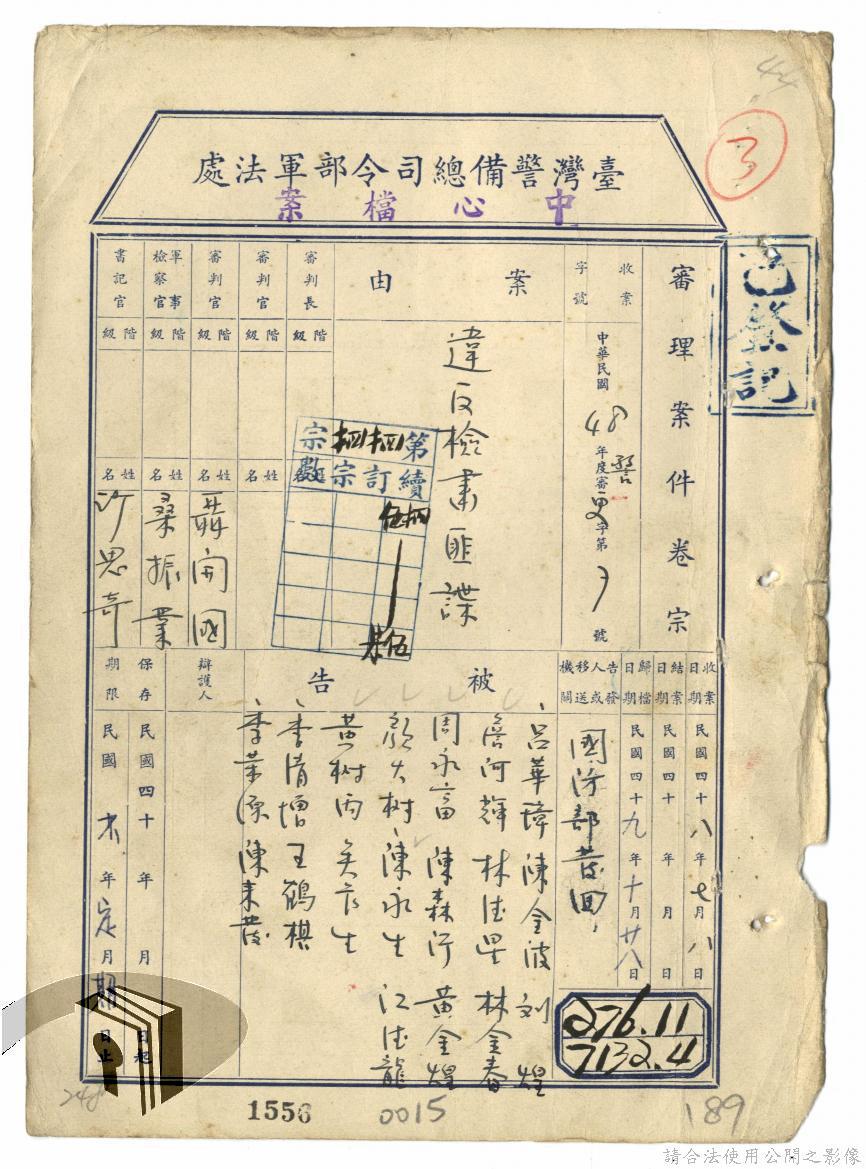 44
3
臺灣警備總司令部軍法處
中心檔案
已登記
審理案件卷宗
收案字號
中華民國48年度警審更字第 號
案由
違反檢肅匪諜
第 宗
續訂宗數
伍
審判長
階級
姓名
審判官
階級
姓名
審判官
階級
姓名
聶開國
軍事檢察官
階級
姓名
桑振業
書記官
階級
姓名
許思奇
收案日期
民國四十八年七月八日
結案日期
民國四十 年 月 日
歸檔日期
民國四十九年十月廿八日
告發人或移送機關
國防部發回
被告
呂華璋 陳金波 刘煌
詹河輝 林德星 林金春
周永富 陳森河 黃金煌
顏大樹 陳永生 江德龍
黃樹丙 吳辰生
李清增 王鶴棋
李葉源 陳來發
辯護人
保存期限
民國四十 年 月 日起
民國 不年定月期日止
276.11
7132.4
248
1556
0015
189
請合法使用公開之影像